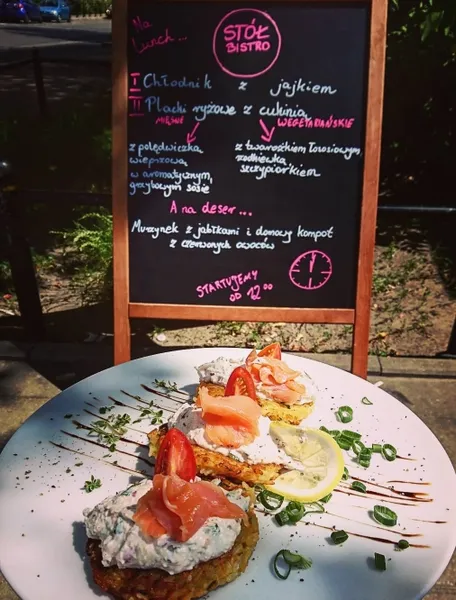 Na
Lunch...
STÓŁ
BISTRO
I Chłodnik z jajkiem
II Placki ryżowe z cukinią
MIĘSNE
WEGETARIAŃSKIE
z polędwiczką
wieprzową
w aromatycznym,
grzybowym sosie
z twarożkiem łososiowym,
rzodkiewką
szczypiorkiem
A na deser...
Murzynek z jabłkami i domowy kompot
z czerwonych owoców
STARTUJEMY
OD 12⁰⁰